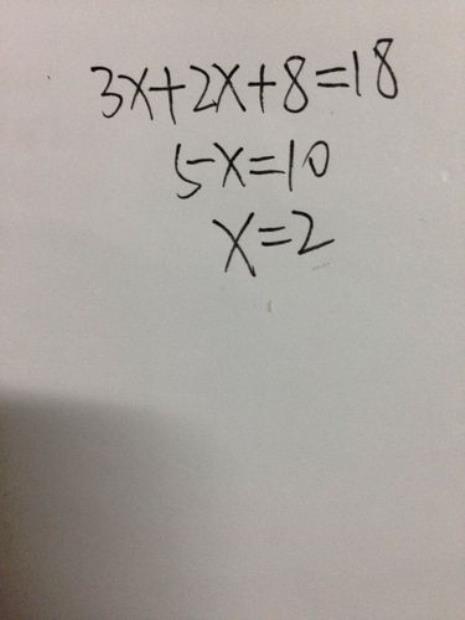 3x+2x+8=18
5x=10
x=2